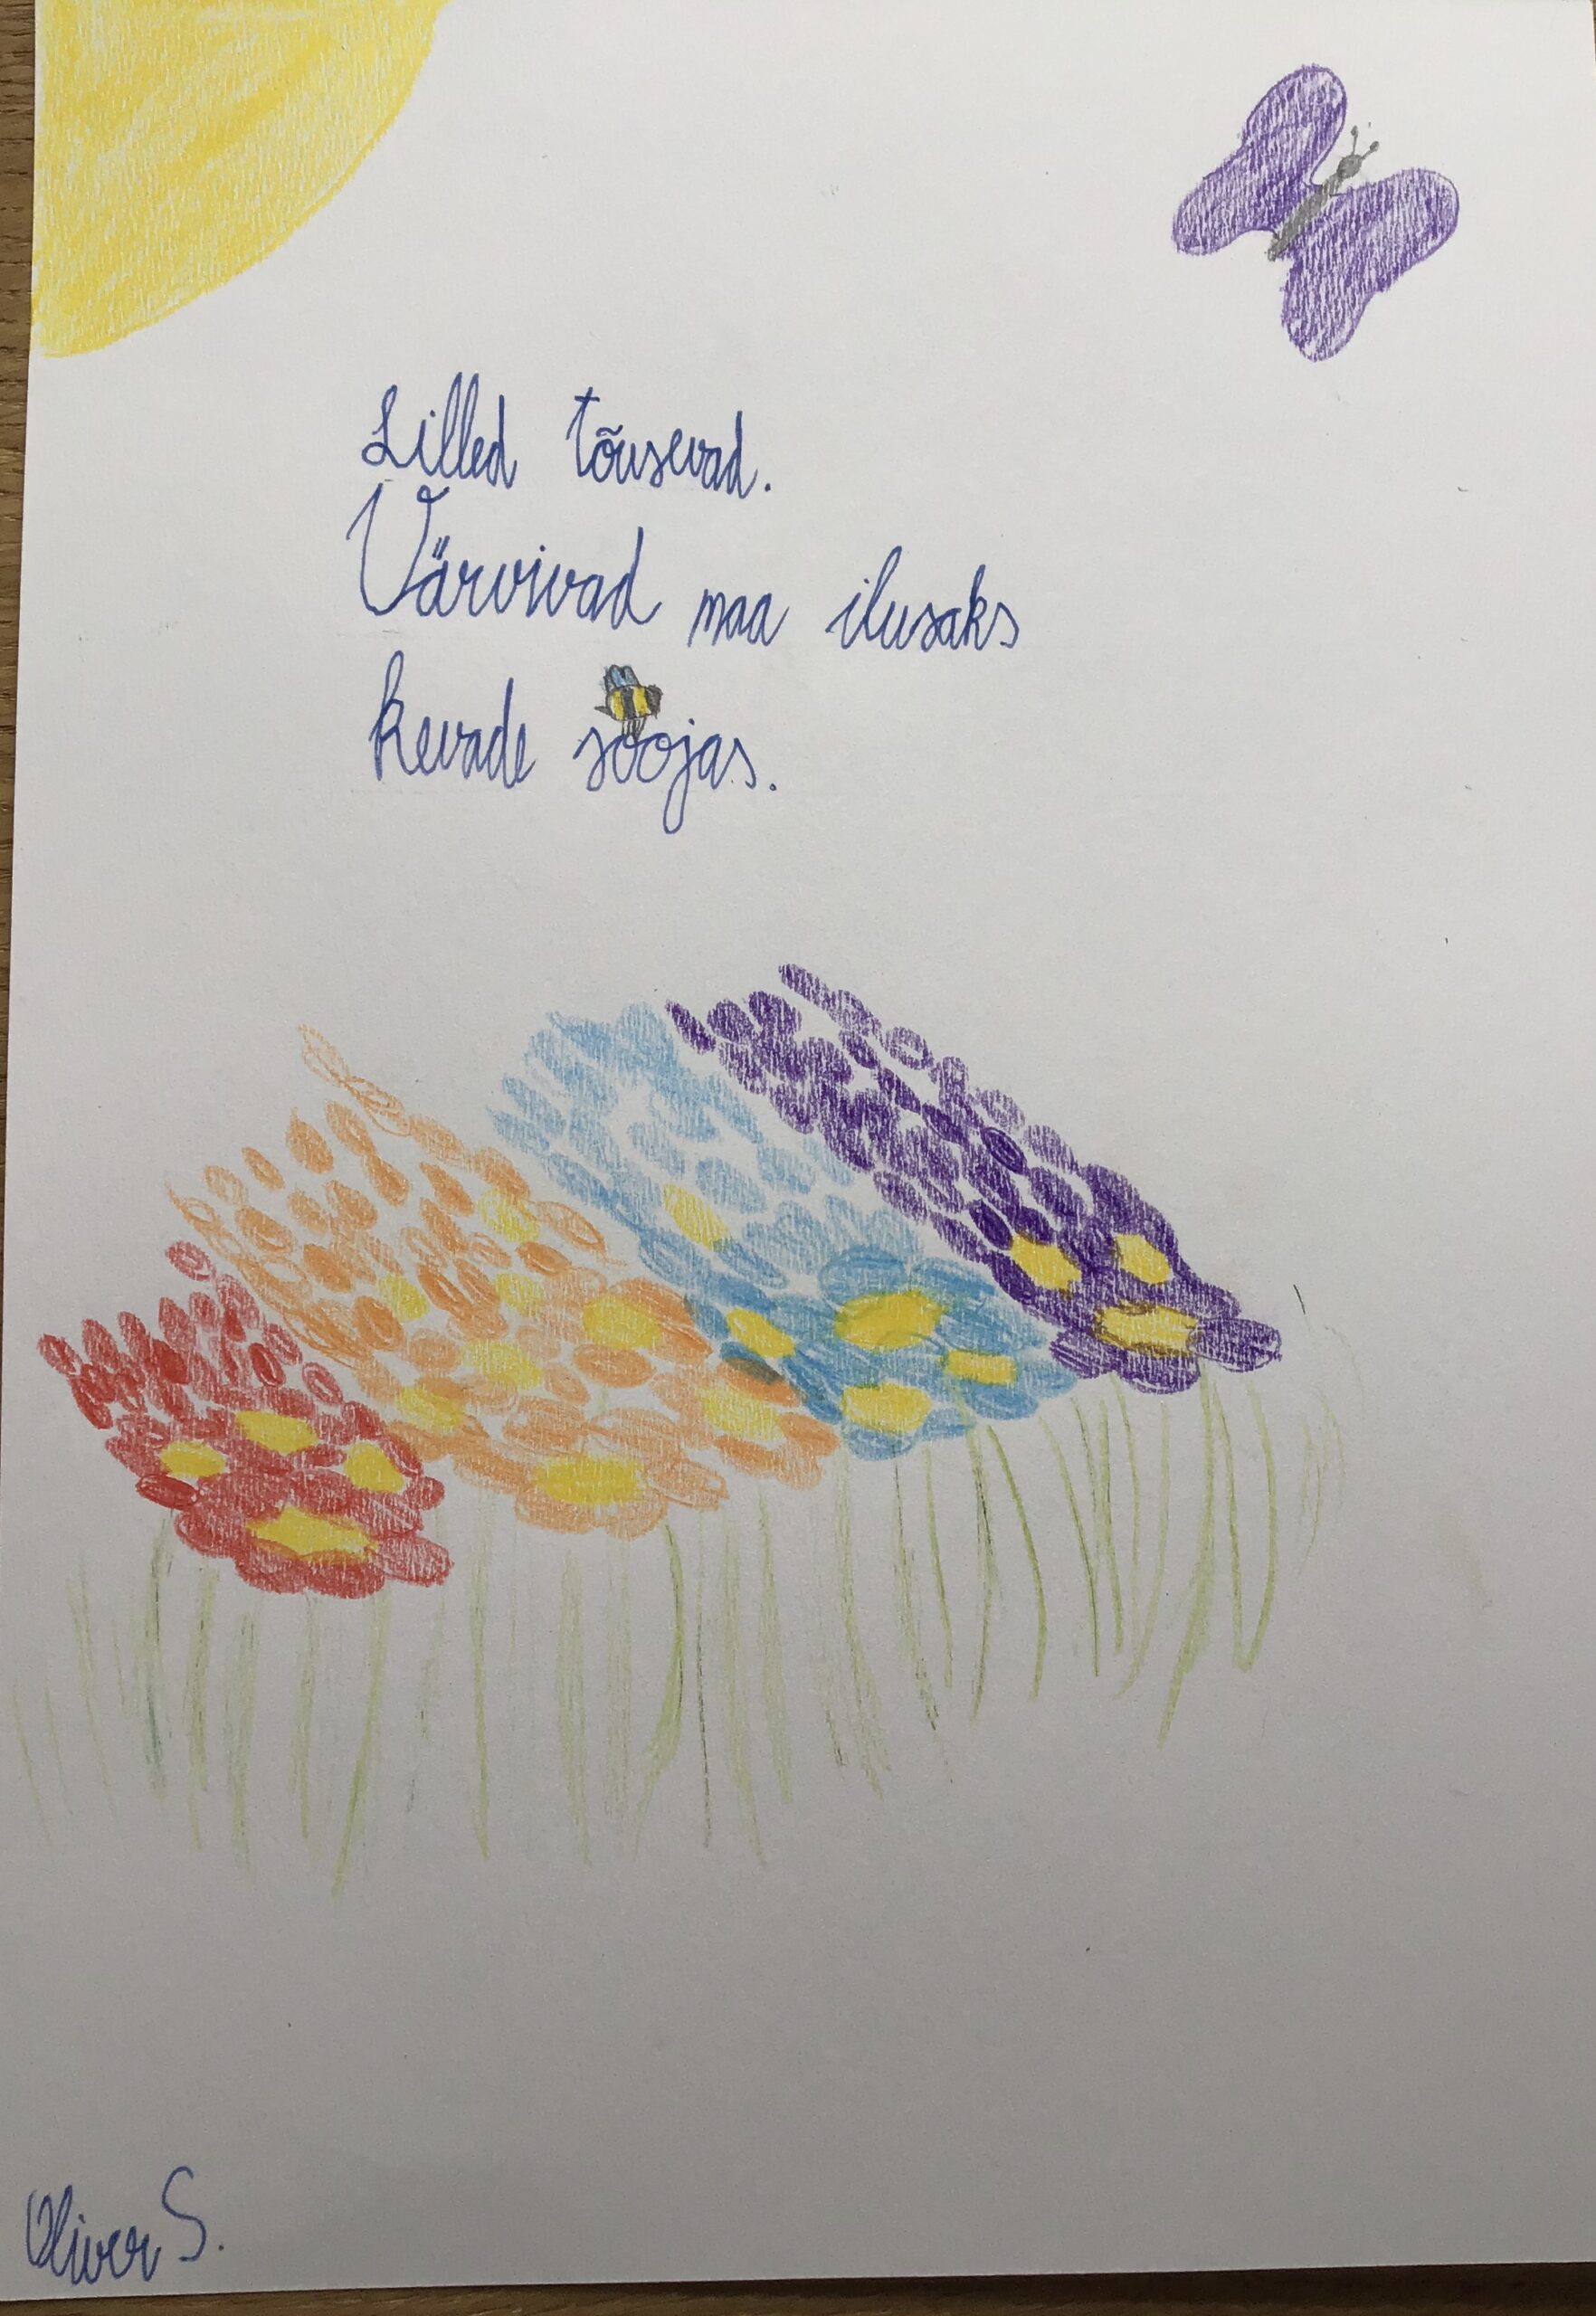 Lilled tõusevad.
Värvivad maa ilusaks
kevade soojas.
Oliver S.